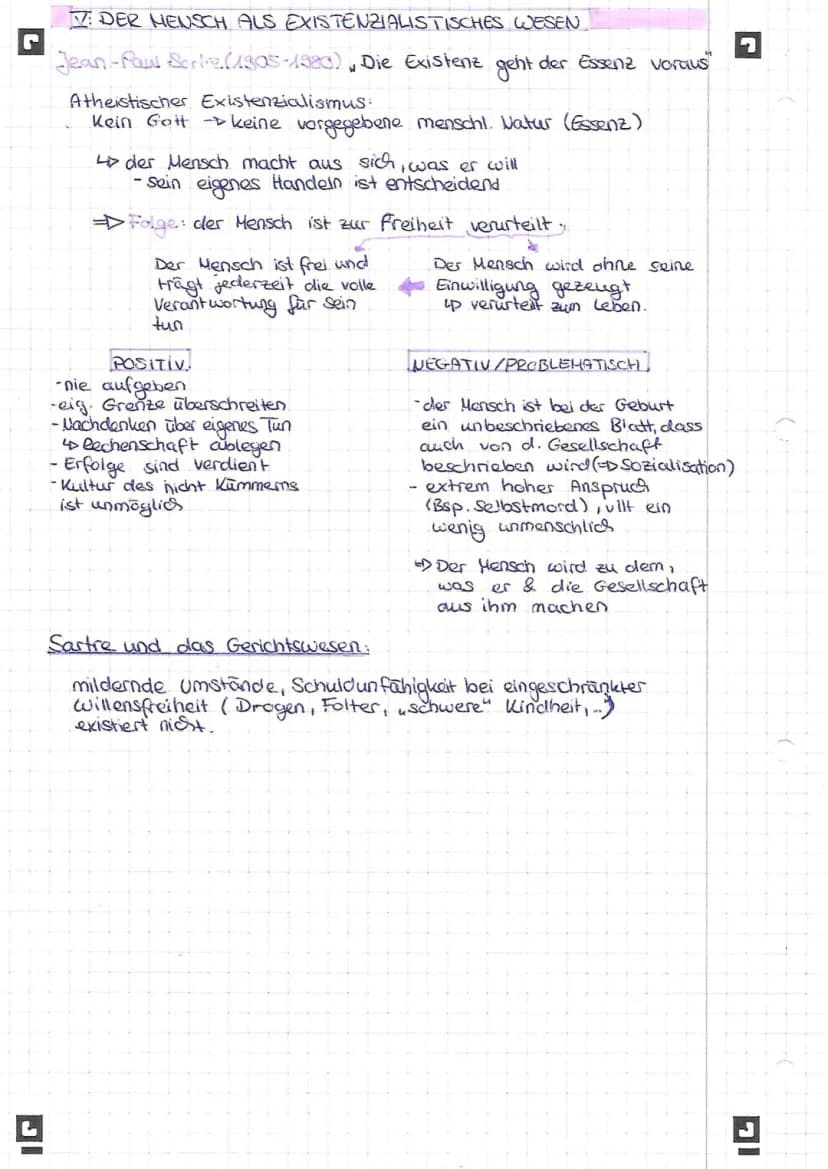 V: DER MENSCH ALS EXISTENZIALISTISCHES WESEN
Jean-Paul Sartre (1905-1980) „Die Existenz geht der Essenz voraus"
Atheistischer Existenzialismus:
Kein Gott -> keine vorgegebene menschl. Natur (Essenz)
↳ der Mensch macht aus sich, was er will
- sein eigenes Handeln ist entscheidend
=> Folge: der Mensch ist zur Freiheit verurteilt.
Der Mensch ist frei und
trägt jederzeit die volle
Verantwortung für sein
tun
Der Mensch wird ohne seine
Einwilligung gezeugt
↳ verurteilt zum Leben.
POSITIV:
- nie aufgeben
- eig. Grenze überschreiten
- Nachdenken über eigenes Tun
↳ Rechenschaft ablegen
- Erfolge sind verdient
- Kultur des nicht Kümmerns
ist unmöglich
NEGATIV/PROBLEMATISCH
- der Mensch ist bei der Geburt
ein unbeschriebenes Blatt, dass
auch von d. Gesellschaft
beschrieben wird (=> Sozialisation)
- extrem hoher Anspruch
(Bsp. Selbstmord), vllt ein
wenig unmenschlich
=> Der Mensch wird zu dem,
was er & die Gesellschaft
aus ihm machen
Sartre und das Gerichtswesen:
mildernde Umstände, Schuldunfähigkeit bei eingeschränkter
Willensfreiheit (Drogen, Folter, „schwere" Kindheit,..)
existiert nicht.